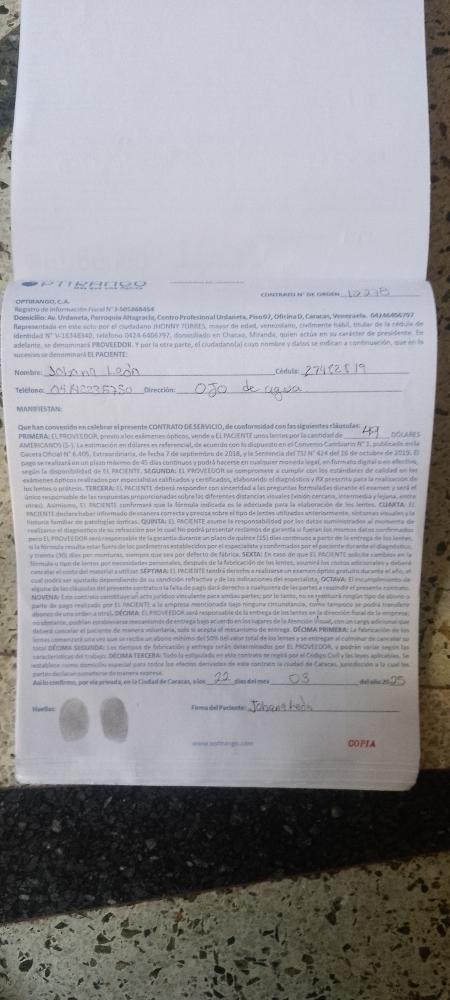 OPTIRANGO
CONTRATO N° DE ORDEN
OPTIRANGO, C.A.
Registro de Información Fiscal N° J-505868454
Domicilio: Av. Urdaneta, Parroquia Altagracia, Centro Profesional Urdaneta, Piso 07, Oficina D, Caracas, Venezuela. 04246406797
Representada en este acto por el ciudadano JHONNY TORRES, mayor de edad, venezolano, civilmente hábil, titular de la cédula de
identidad N° V-16348340, teléfono 0424-6406797, domiciliado en Chacao, Miranda, quien actúa en su carácter de presidente. En
adelante, se denominará PROVEEDOR. Y por la otra parte, el ciudadano(a) cuyo nombre y datos se indican a continuación, que en lo
sucesivo se denominará EL PACIENTE:
Nombre: Johana León Cédula:
Teléfono: Dirección: Ojo de agua
MANIFIESTAN:
Que han convenido en celebrar el presente CONTRATO DE SERVICIO, de conformidad con las siguientes cláusulas:
PRIMERA: EL PROVEEDOR, previo a los exámenes ópticos, vende a EL PACIENTE unos lentes por la cantidad de 49 DÓLARES
AMERICANOS ($-). La estimación en dólares es referencial, de acuerdo con lo dispuesto en el Convenio Cambiario N° 1, publicado en la
Gaceta Oficial N° 6.405, Extraordinaria, de fecha 7 de septiembre de 2018, y la Sentencia del TSJ N° 424 del 16 de octubre de 2019. El
pago se realizará en un plazo máximo de 45 días continuos y podrá hacerse en cualquier moneda legal, en formato digital o en efectivo,
según la disponibilidad de EL PACIENTE. SEGUNDA: EL PROVEEDOR se compromete a cumplir con los estándares de calidad en los
exámenes ópticos realizados por especialistas calificados y certificados, elaborando el diagnóstico y RX prescrita para la realización de
los lentes o prótesis. TERCERA: EL PACIENTE deberá responder con sinceridad a las preguntas formuladas durante el examen y será el
único responsable de las respuestas proporcionadas sobre las diferentes distancias visuales (visión cercana, intermedia y lejana, entre
otras). Asimismo, EL PACIENTE confirmará que la fórmula indicada es la adecuada para la elaboración de los lentes. CUARTA: EL
PACIENTE declara haber informado de manera correcta y precisa sobre el tipo de lentes utilizados anteriormente, síntomas visuales y la
historia familiar de patologías ópticas. QUINTA: EL PACIENTE asume la responsabilidad por los datos suministrados al momento de
realizarse el diagnóstico de su refracción por lo cual No podrá presentar reclamos de garantía si fueran los mismos datos confirmados
pero EL PROVEEDOR será responsable de la garantía durante un plazo de quince (15) días continuos a partir de la entrega de los lentes,
si la fórmula resulta estar fuera de los parámetros establecidos por el especialista y confirmados por el paciente durante el diagnóstico,
y treinta (30) días por monturas, siempre que sea por defecto de fábrica. SEXTA: En caso de que EL PACIENTE solicite cambios en la
fórmula o tipo de lentes por necesidades personales, después de la fabricación de los lentes, asumirá los costos adicionales y deberá
cancelar el costo del material a utilizar. SÉPTIMA: EL PACIENTE tendrá derecho a realizarse un examen óptico gratuito durante el año, el
cual podrá ser ajustado dependiendo de su condición refractiva y de las indicaciones del especialista. OCTAVA: El incumplimiento de
alguna de las cláusulas del presente contrato o la falta de pago dará derecho a cualquiera de las partes a rescindir el presente contrato.
NOVENA: Este contrato constituye un acto jurídico vinculante para ambas partes; por lo tanto, no se restituirá ningún tipo de abono o
parte de pago realizado por EL PACIENTE a la empresa mencionada bajo ninguna circunstancia, como tampoco se podrá transferir
abonos de una orden a otra). DÉCIMA: EL PROVEEDOR será responsable de la entrega de los lentes en la dirección fiscal de la empresa;
no obstante, podrían establecerse opciones de entrega de acuerdo en los lugares de la Atención Visual, con un cargo adicional que
deberá cancelar el paciente de manera voluntaria, solo si acepta el mecanismo de entrega. DÉCIMA PRIMERA: La fabricación de los
lentes comenzará una vez que se reciba un abono mínimo del 50% del valor total de los lentes y se entregan al culminar de cancelar su
total. DÉCIMA SEGUNDA: Los tiempos de fabricación y entrega serán determinados por EL PROVEEDOR, y podrán variar según las
características del trabajo. DÉCIMA TERCERA: Todo lo estipulado en este contrato se regirá por el Código Civil y las leyes aplicables. Se
establece como domicilio especial para todos los efectos derivados de este contrato la ciudad de Caracas, jurisdicción a la cual las
partes declaran someterse de manera expresa.
Así lo confirmo, por vía privada, en la Ciudad de Caracas, a los 22 días del mes 03 del año 2025
Huellas: Firma del Paciente: Johana León
www.optirango.com COPIA